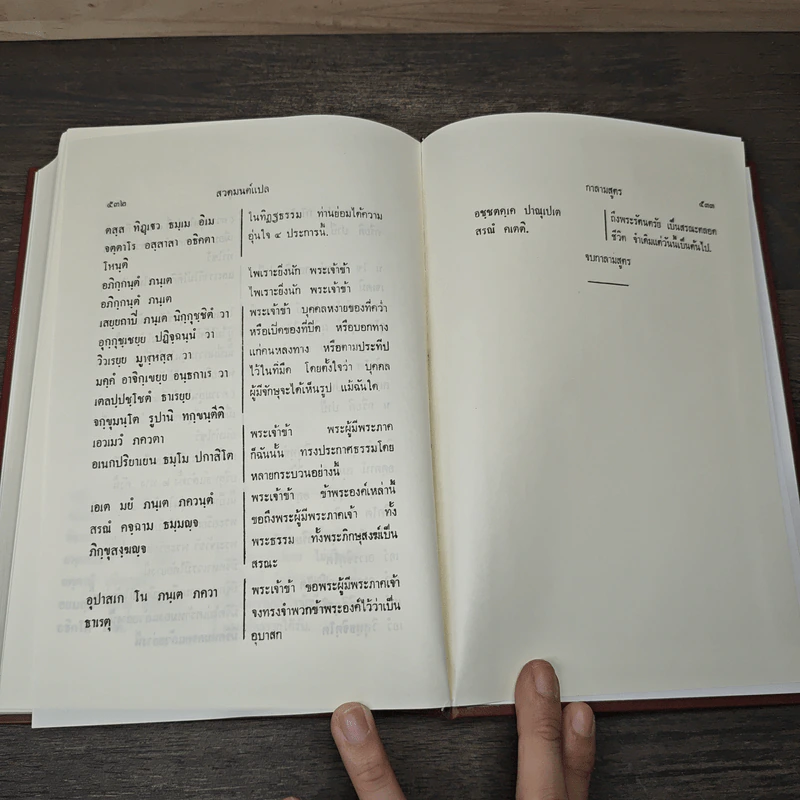 ๕๓๒
สวดมนต์แปล
ตสฺส ทิฏฺเฐว ธมฺเม อิเม
จตฺตาโร อสฺสาสา อธิคตา
โหนฺติ
อภิกฺกนฺตํ ภนฺเต
อภิกฺกนฺตํ ภนฺเต
เสยฺยถาปิ ภนฺเต นิกฺกุชฺชิตํ วา
อุกฺกุชฺเชยฺย ปฏิจฺฉนฺนํ วา
วิวเรยฺย มูฬฺหสฺส วา
มคฺคํ อาจิกฺเขยฺย อนฺธกาเร วา
เตลปฺปชฺโชตํ ธาเรยฺย
จกฺขุมนฺโต รูปานิ ทกฺขนฺตีติ
เอวเมวํ ภควตา
อเนกปริยาเยน ธมฺโม ปกาสิโต
เอเต มยํ ภนฺเต ภควนฺตํ
สรณํ คจฺฉาม ธมฺมญฺจ
ภิกฺขุสงฺฆญฺจ
อุปาสเก โน ภนฺเต ภควา
ธาเรตุ
ในทิฏฐธรรม ท่านย่อมได้ความ
อุ่นใจ ๔ ประการนี้.
ไพเราะยิ่งนัก พระเจ้าข้า
ไพเราะยิ่งนัก พระเจ้าข้า
พระเจ้าข้า บุคคลหงายของที่คว่ำ
หรือเปิดของที่ปิด หรือบอกทาง
แก่คนหลงทาง หรือตามประทีป
ไว้ในที่มืด โดยตั้งใจว่า บุคคล
ผู้มีจักษุจะได้เห็นรูป แม้ฉันใด
พระเจ้าข้า พระผู้มีพระภาค
ก็ฉันนั้น ทรงประกาศธรรมโดย
หลายกระบวนอย่างนี้
พระเจ้าข้า ข้าพระองค์เหล่านี้
ขอถึงพระผู้มีพระภาคเจ้า ทั้ง
พระธรรม ทั้งพระภิกษุสงฆ์เป็น
สรณะ
พระเจ้าข้า ขอพระผู้มีพระภาคเจ้า
จงทรงจำพวกข้าพระองค์ไว้ว่าเป็น
อุบาสก
กาลามสูตร
๕๓๓
อชฺชตคฺเค ปาณุเปเต
สรณํ คเตติ.
ถึงพระรัตนตรัย เป็นสรณะตลอด
ชีวิต จำเดิมแต่วันนี้เป็นต้นไป.
จบกาลามสูตร